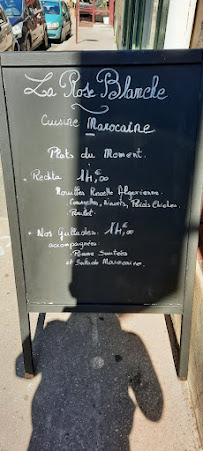 La Rose Blanche
Cuisine Marocaine
Plats du Moment.
Rechta 14,00€
Nouilles Recette Algérienne.
Courgettes, Navets, Pois Chiches.
Poulet.
Nos Grillades. 14,00€
accompagnées
Pomme Sautées
et Salade Marocaine.